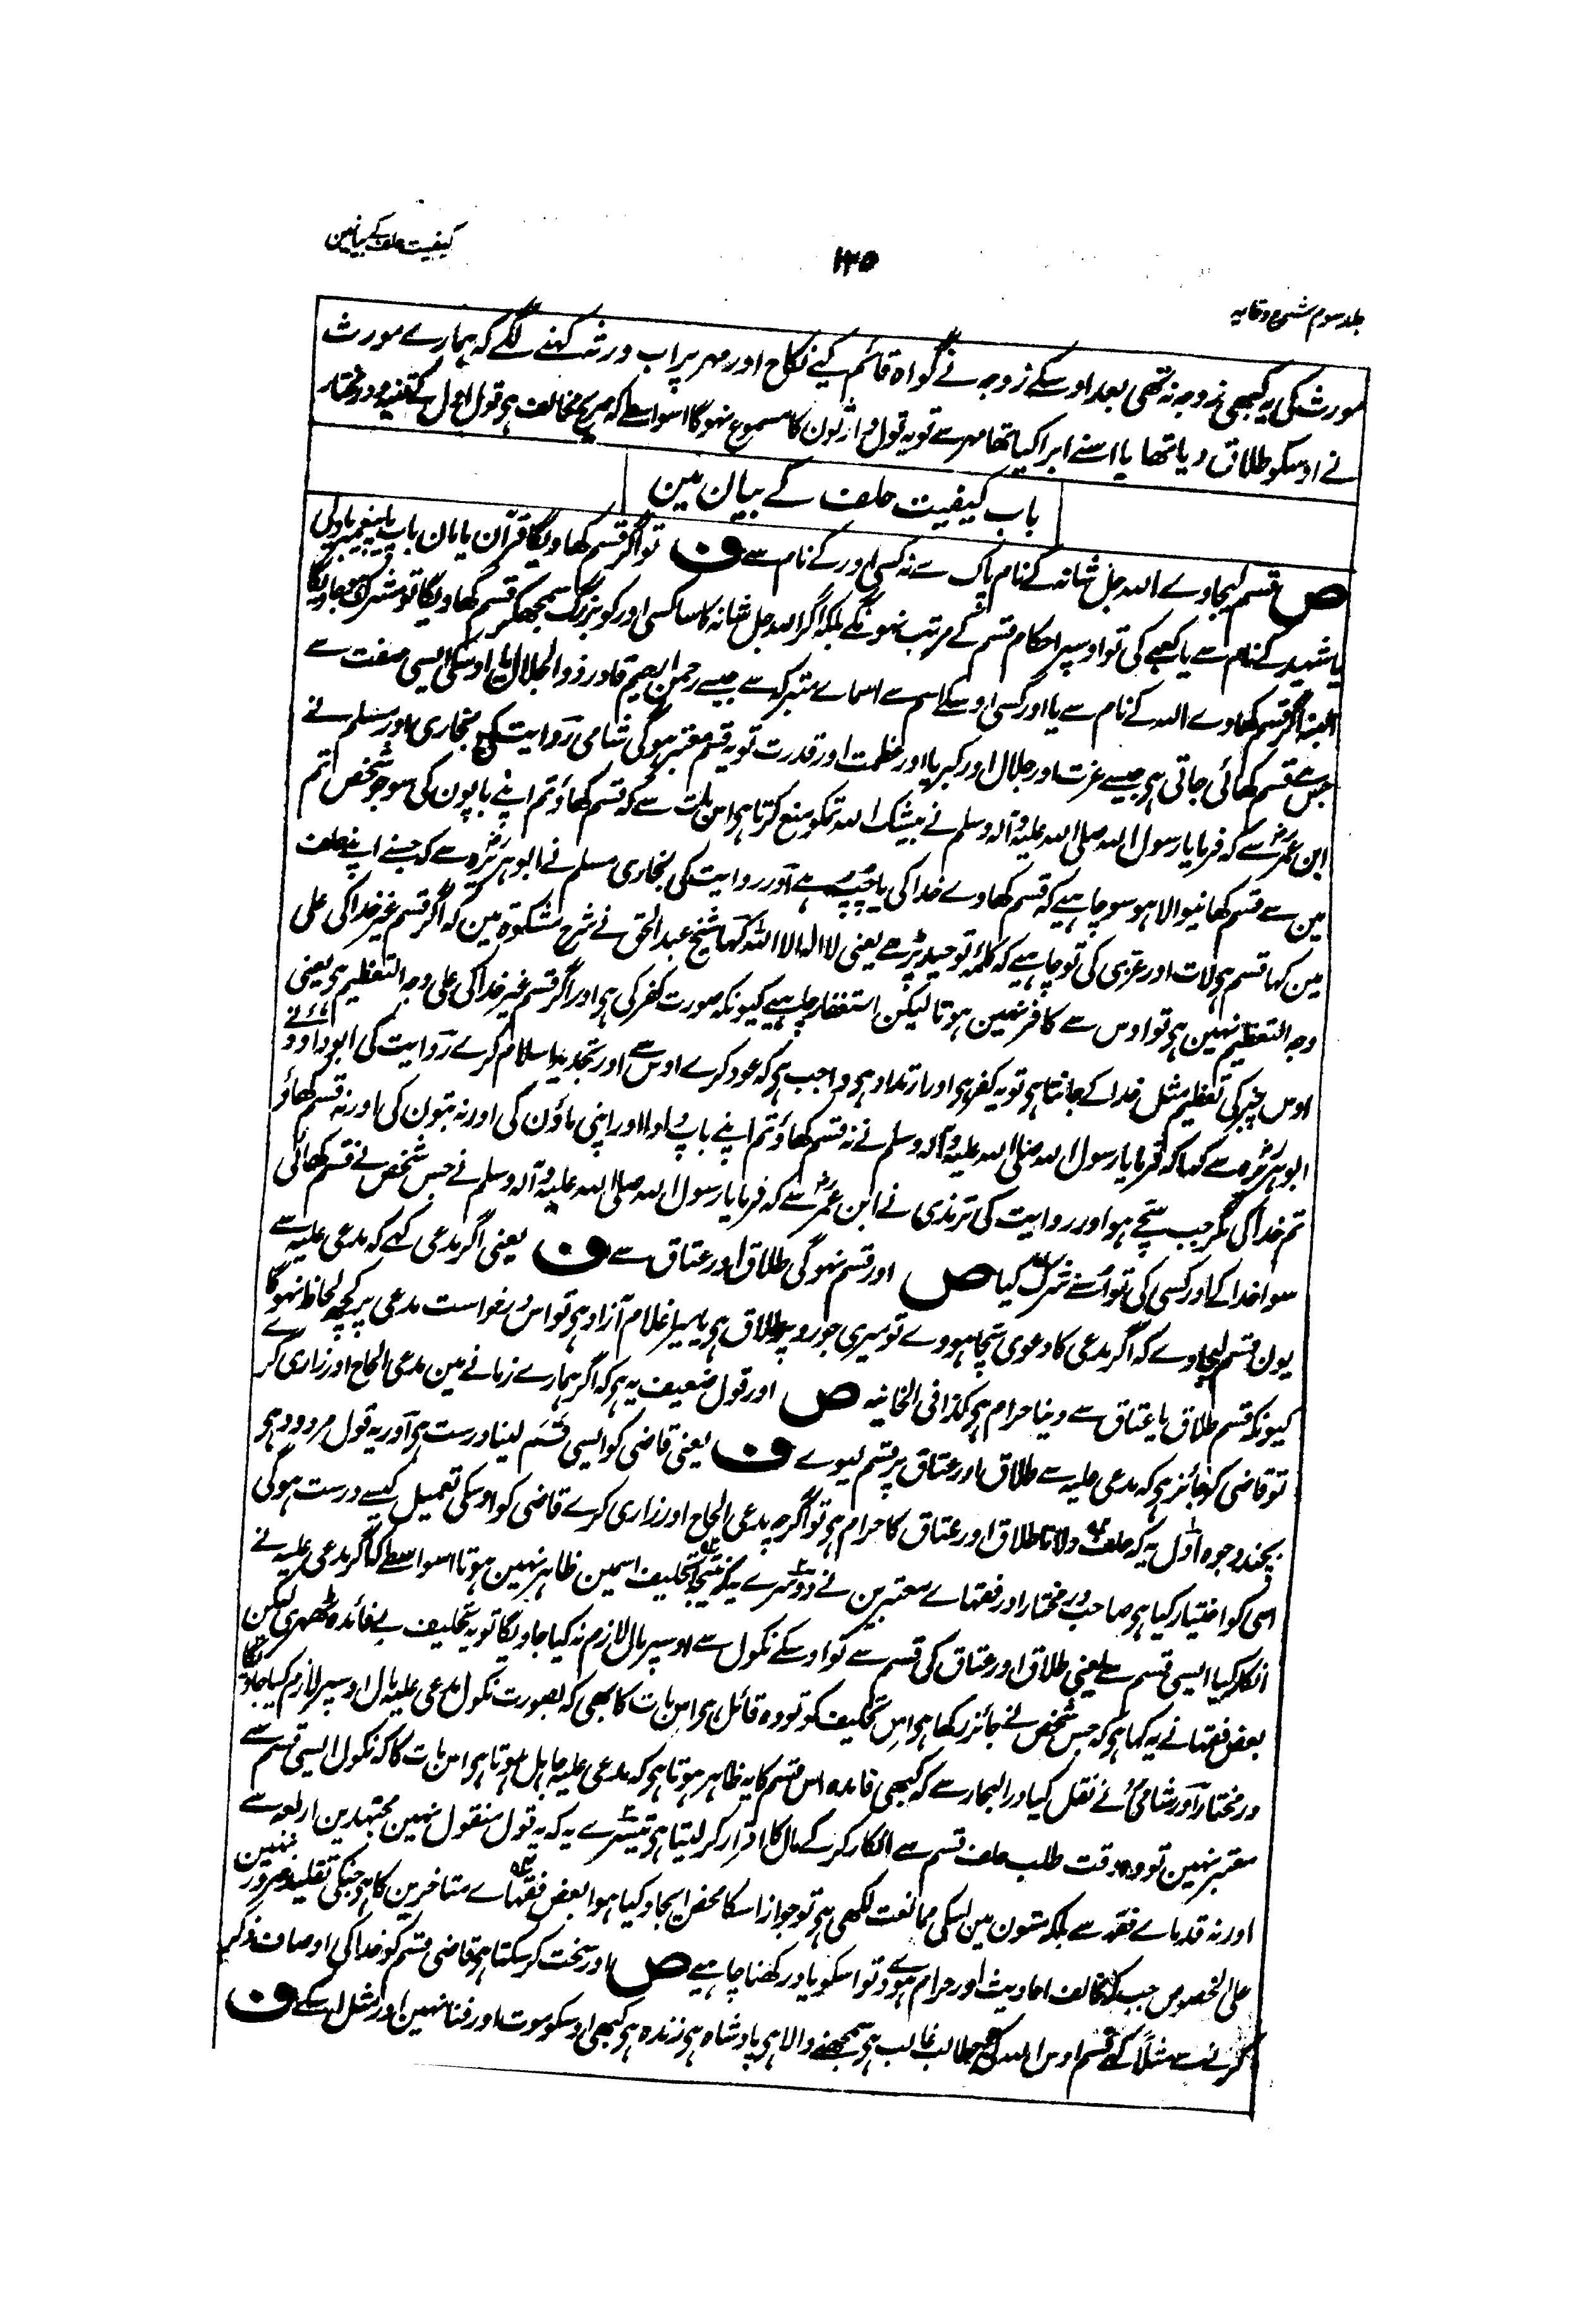 جلد سوم شرح وقایہ
۱۳۵
کیفیت حلف کے بیانمین
مورث کی یہ کبھی زوجہ نہ تھی بعد اوسکے زوجہ نے گواہ قائم کیے نکاح اور مہر پر اب ورثہ کہنے لگے کہ ہمارے مورث
نے اوسکو طلاق دیا تھا یا اسنے ابرا کیا تھا مہر سے تو یہ قول وارثون کا مسموع نہوگا اسواسطے کہ صریح مخالف ہی قول اول کے
باب کیفیت حلف کے بیان مین
ص قسم لیجاوے اللہ جل شانہ کے نام پاک سے نہ کسی اور کے نام سے ف تو اگر قسم کھاویگا قرآن یا مان باپ یا پیغمبر یا ولی
یا شہید کے نام سے یا کعبے کی تو اوسپر احکام قسم کے مرتب نہونگے بلکہ اگر اللہ جل شانہ کا سا کسی اور کو بزرگ سمجھکر قسم کھاویگا تو مشرک ہو جاویگا
البتہ اگر قسم کھاوے اللہ کے نام سے یا اور کسی اوسکے اسم سے اسماے متبرکہ سے جیسے رحمن رحیم قادر ذو الجلال یا اوسکی ایسی صفت سے
جس سے قسم کھائی جاتی ہی جیسے عزت اور جلال اور کبریا اور عظمت اور قدرت تو یہ قسم معتبر ہوگی شامی روایت کی بخاری اور مسلم نے
ابن عمرؓ سے کہ فرمایا رسول اللہ صلی اللہ علیہ وآلہ وسلم نے بیشک اللہ تمکو منع کرتا ہی اس بات سے کہ قسم کھاؤ تم اپنے باپون کی سو جو شخص تم
مین سے قسم کھانیوالا ہو سو چاہیے کہ قسم کھاوے خدا کی یا چپ رہے اور روایت کی بخاری مسلم نے ابو ہریرہؓ سے کہ جسنے اپنے حلف
مین کہا قسم ہی لات اور عزی کی تو چاہیے کہ کلمہ توحید پڑھے یعنی لا الہ الا اللہ کہا شیخ عبد الحق نے شرح مشکوۃ مین کہ اگر قسم غیر خدا کی علی
وجہ التعظیم نہین ہی تو اوس سے کافر نہین ہوتا لیکن استغفار چاہیے کیونکہ صورت کفر کی ہی اور اگر قسم غیر خدا کی علی وجہ التعظیم ہی یعنی
اوس چیز کی تعظیم مثل خدا کے جانتا ہی تو یہ کفر ہی اور ارتداد ہی واجب ہی کہ عود کرے اوس سے اور تجدید اسلام کرے روایت کی ابو داؤد نے
ابو ہریرہؓ سے کہا کہ فرمایا رسول اللہ صلی اللہ علیہ وآلہ وسلم نے نہ قسم کھاؤ تم اپنے باپ اور اپنی ماؤن کی اور نہ بتون کی اور نہ قسم کھاؤ
تم خدا کی مگر جب سچے ہو اور روایت کی ترمذی نے ابن عمرؓ سے کہ فرمایا رسول اللہ صلی اللہ علیہ وآلہ وسلم نے جس شخص نے قسم کھائی
سوا خدا کے اور کسی کی تو اسنے شرک کیا ص اور قسم نہوگی طلاق اور عتاق سے ف یعنی اگر مدعی کہے کہ مدعی علیہ سے
یون قسم لیجاوے کہ اگر مدعی کا دعوی سچا ہووے تو میری جورو پر طلاق ہی یا میرا غلام آزاد ہی تو اس درخواست مدعی پر کچھ لحاظ نہوگا
کیونکہ قسم طلاق یا عتاق سے دینا حرام ہی کذا فی الخانیہ ص اور قول ضعیف یہ ہی کہ اگر ہمارے زمانے مین مدعی الحاح اور زاری کرے
تو قاضی کو جائز ہی کہ مدعی علیہ سے طلاق اور عتاق پر قسم لیوے ف یعنی قاضی کو ایسی قسم لینا درست ہی اور یہ قول مردود ہی
بچند وجوہ اول یہ کہ حلف دلانا طلاق اور عتاق کا حرام ہی تو اگرچہ مدعی الحاح اور زاری کرے قاضی کو اوسکی تعمیل کیسے درست ہوگی
اسی کو اختیار کیا ہی صاحب در مختار اور فقہاے معتبرین نے دوسرے یہ کہ نتیجہ تحلیف اسمین ظاہر نہین ہوتا اسواسطے کہ اگر مدعی علیہ نے
انکار کیا ایسی قسم سے یعنی طلاق اور عتاق کی قسم سے تو اوسکے نکول سے اوسپر مال لازم نہ کیا جاویگا تو یہ تحلیف بے فائدہ ٹھہری لیکن
بعض فقہا نے یہ کہا ہی کہ جس شخص نے جائز رکھا ہی اس تحلیف کو تو وہ قائل ہی اس بات کا بھی کہ بصورت نکول مدعی علیہ مال اوسپر لازم کیا جاویگا
در مختار اور شامی نے نقل کیا در البحار سے کہ کبھی فائدہ اس قسم کا یہ ظاہر ہوتا ہی کہ مدعی علیہ جاہل ہوتا ہی اس بات کا کہ نکول ایسی قسم سے
معتبر نہین تو وہ وقت طلب حلف قسم سے انکار کرکے مال کا اقرار کر لیتا ہی تیسرے یہ کہ یہ قول منقول نہین مجتہدین اربعہ سے
اور نہ قدماے فقہ سے بلکہ متون مین اسکی ممانعت لکھی ہی تو جواز اسکا محض ایجاد کیا ہوا بعض فقہاے متاخرین کا ہی جنکی تقلید ضرور نہین
علی الخصوص جب کہ مخالف احادیث اور حرام ہووے تو اسکو یاد رکھنا چاہیے ص اور سخت کر سکتا ہی قاضی قسم کو خدا کی اوصاف ذکر
کرنے سے مثلاً کہے قسم اوس اللہ کی جو طالب غالب ہی سمجھنے والا ہی پادشاہ ہی زندہ ہی کبھی اوسکو موت اور فنا نہین اور مثل اسکے ف